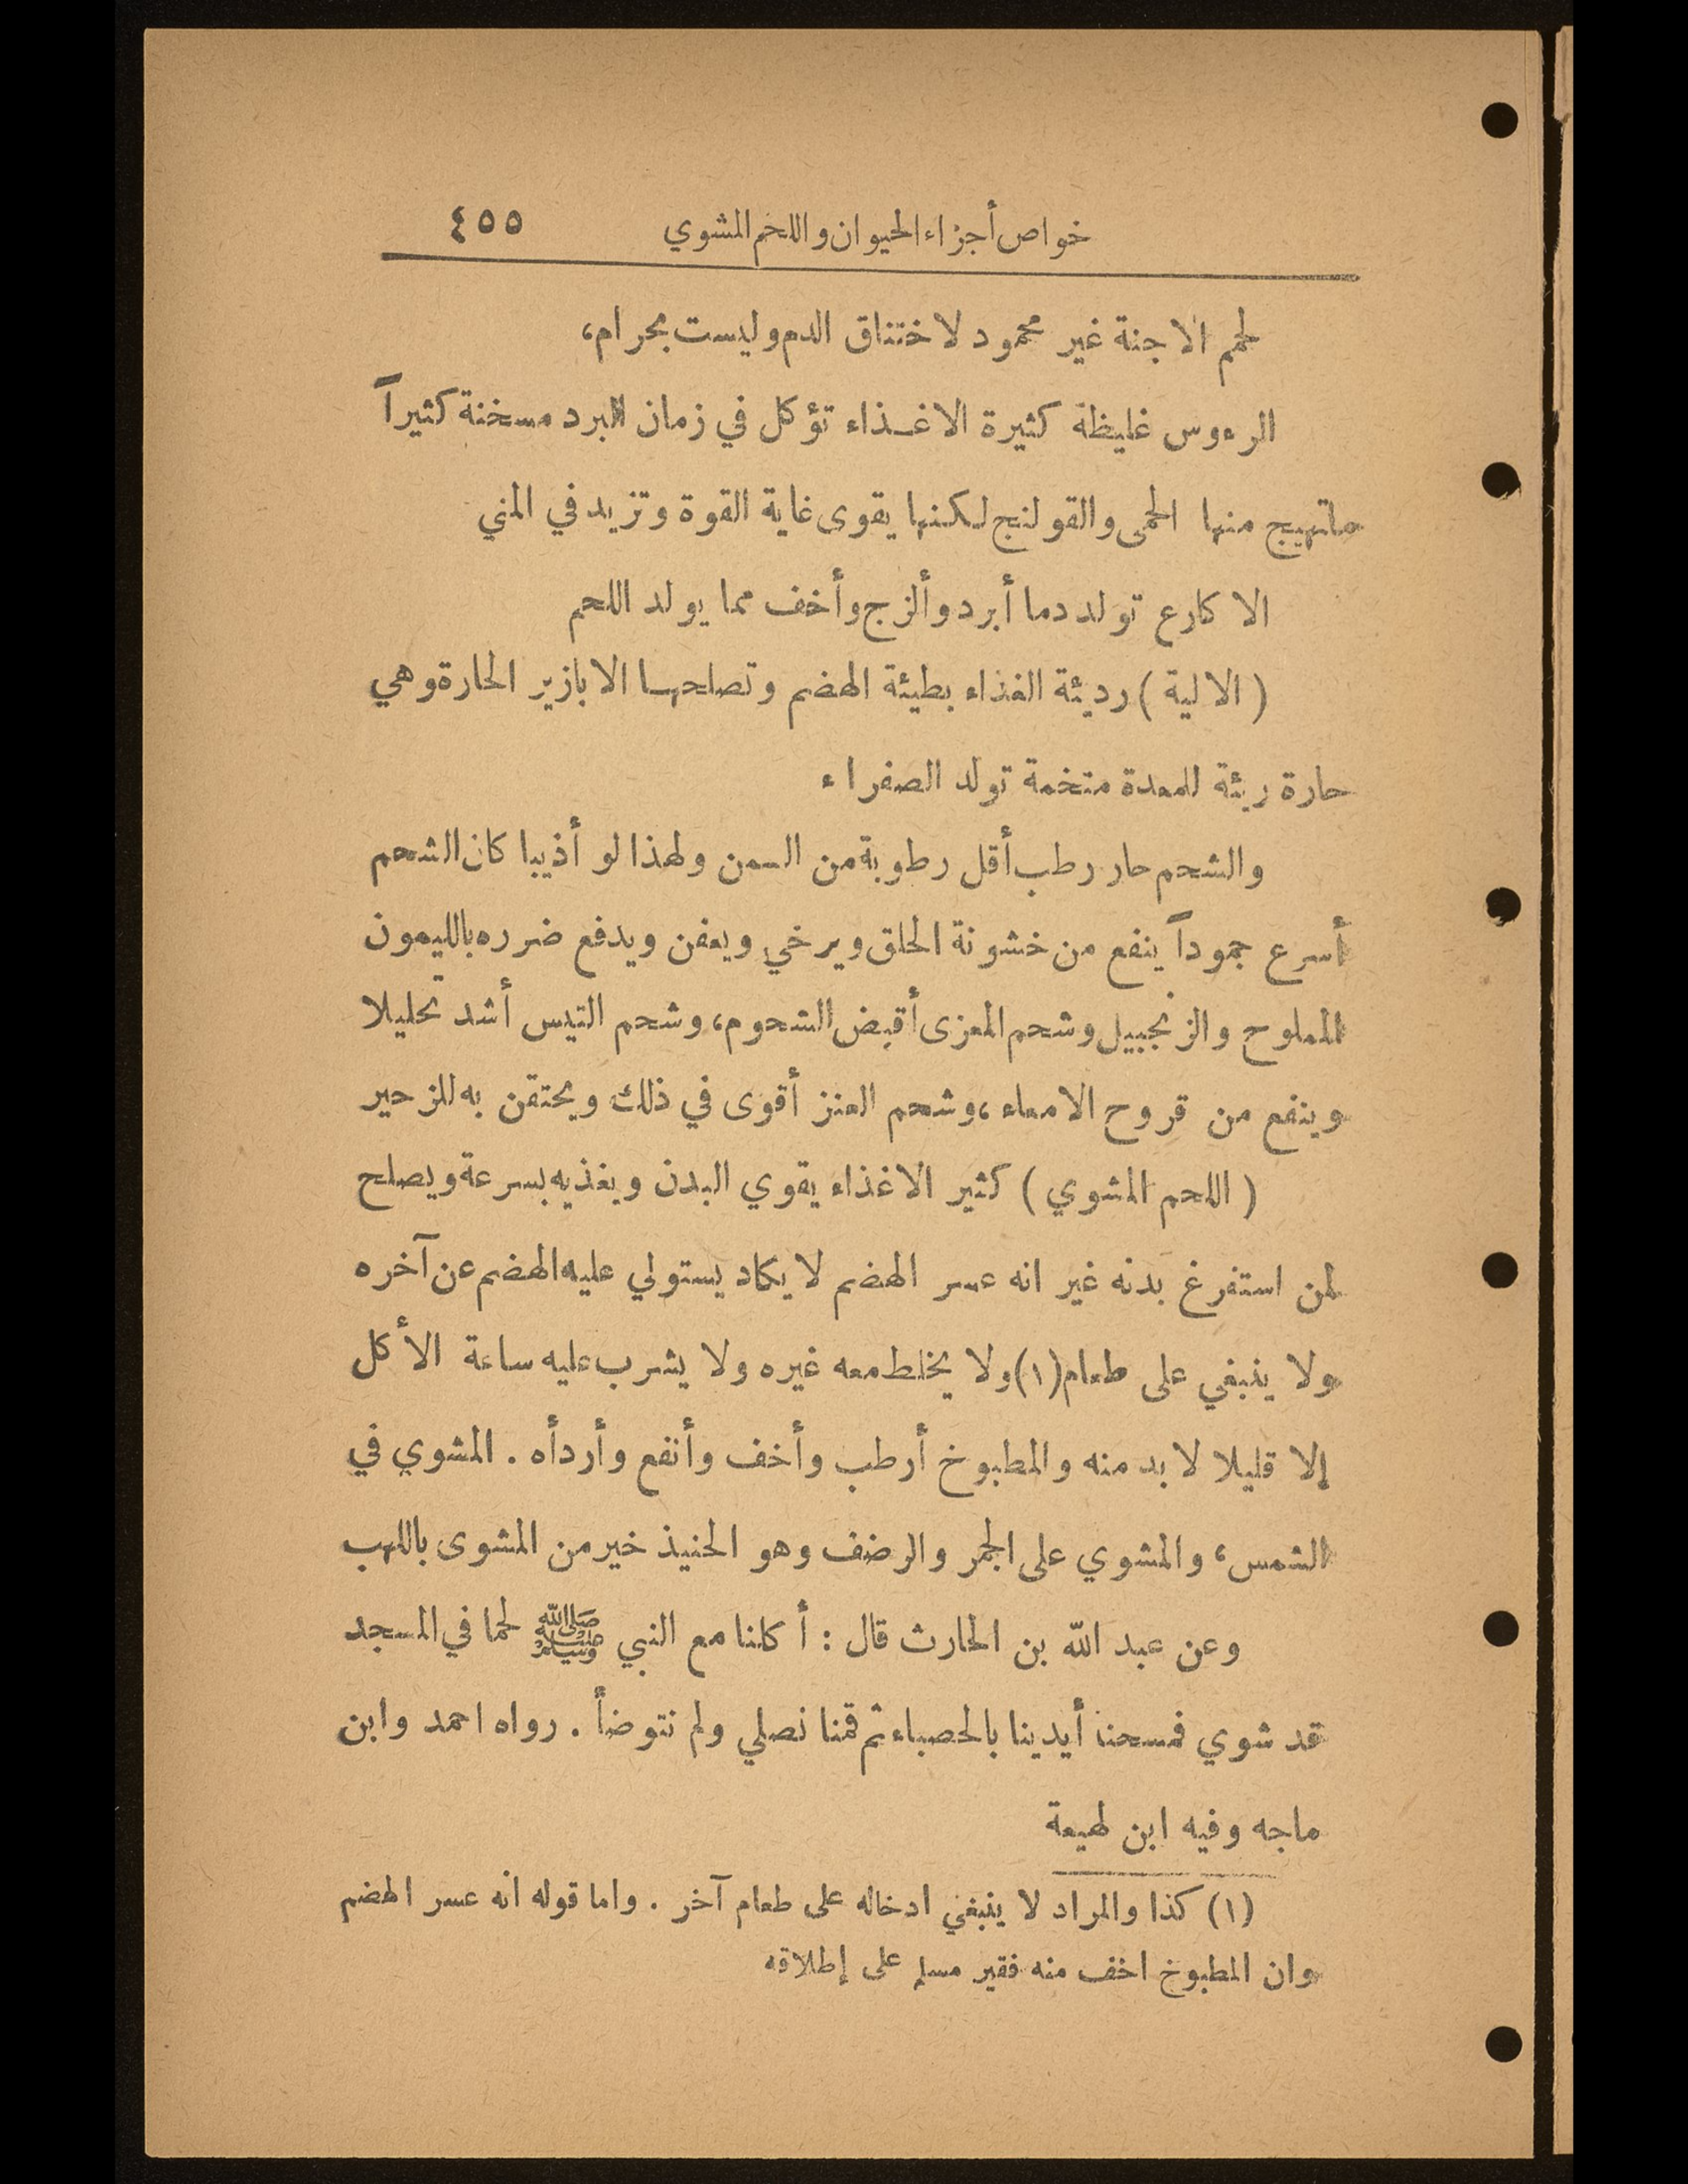 خواص أجزاء الحيوان واللحم المشوي ٤٥٥
لحم الاجنة غير محمود لاختناق الدم وليست بحرام،
الرءوس غليظة كثيرة الاغذاء تؤكل في زمان البرد مسخنة كثيراً
ماتهيج منها الحمى والقولنج لكنها يقوى غاية القوة وتزيد في المني
الاكارع تولد دما أبرد وألزج وأخف مما يولد اللحم
( الالية ) رديئة الغذاء بطيئة الهضم وتصلحها الابازير الحارة وهي
حارة ريئة للمعدة متخمة تولد الصفراء
والشحم حار رطب أقل رطوبة من السمن ولهذا لو أذيبا كان الشحم
أسرع جموداً ينفع من خشونة الحلق ويرخي ويعفن ويدفع ضرره بالليمون
المملوح والزنجبيل وشحم المعزى أقبض الشحوم، وشحم التيس أشد تحليلا
وينفع من قروح الامعاء، وشحم العنز أقوى في ذلك ويحتقن به للزحير
( اللحم المشوي ) كثير الاغذاء يقوي البدن ويغذيه بسرعة ويصلح
لمن استفرغ بدنه غير انه عسر الهضم لا يكاد يستولي عليه الهضم عن آخره
ولا ينبغي على طعام(١) ولا يخلط معه غيره ولا يشرب عليه ساعة الأكل
إلا قليلا لا بد منه والمطبوخ أرطب وأخف وأنفع وأردأه . المشوي في
الشمس، والمشوي على الجمر والرضف وهو الحنيذ خير من المشوى باللهب
وعن عبد الله بن الحارث قال : أكلنا مع النبي ﷺ لحما في المسجد
قد شوي فمسحنا أيدينا بالحصباء ثم قمنا نصلي ولم نتوضأ . رواه احمد وابن
ماجه وفيه ابن لهيعة
(١) كذا والمراد لا ينبغي ادخاله على طعام آخر . واما قوله انه عسر الهضم
وان المطبوخ اخف منه فقير مسلم على إطلاقه